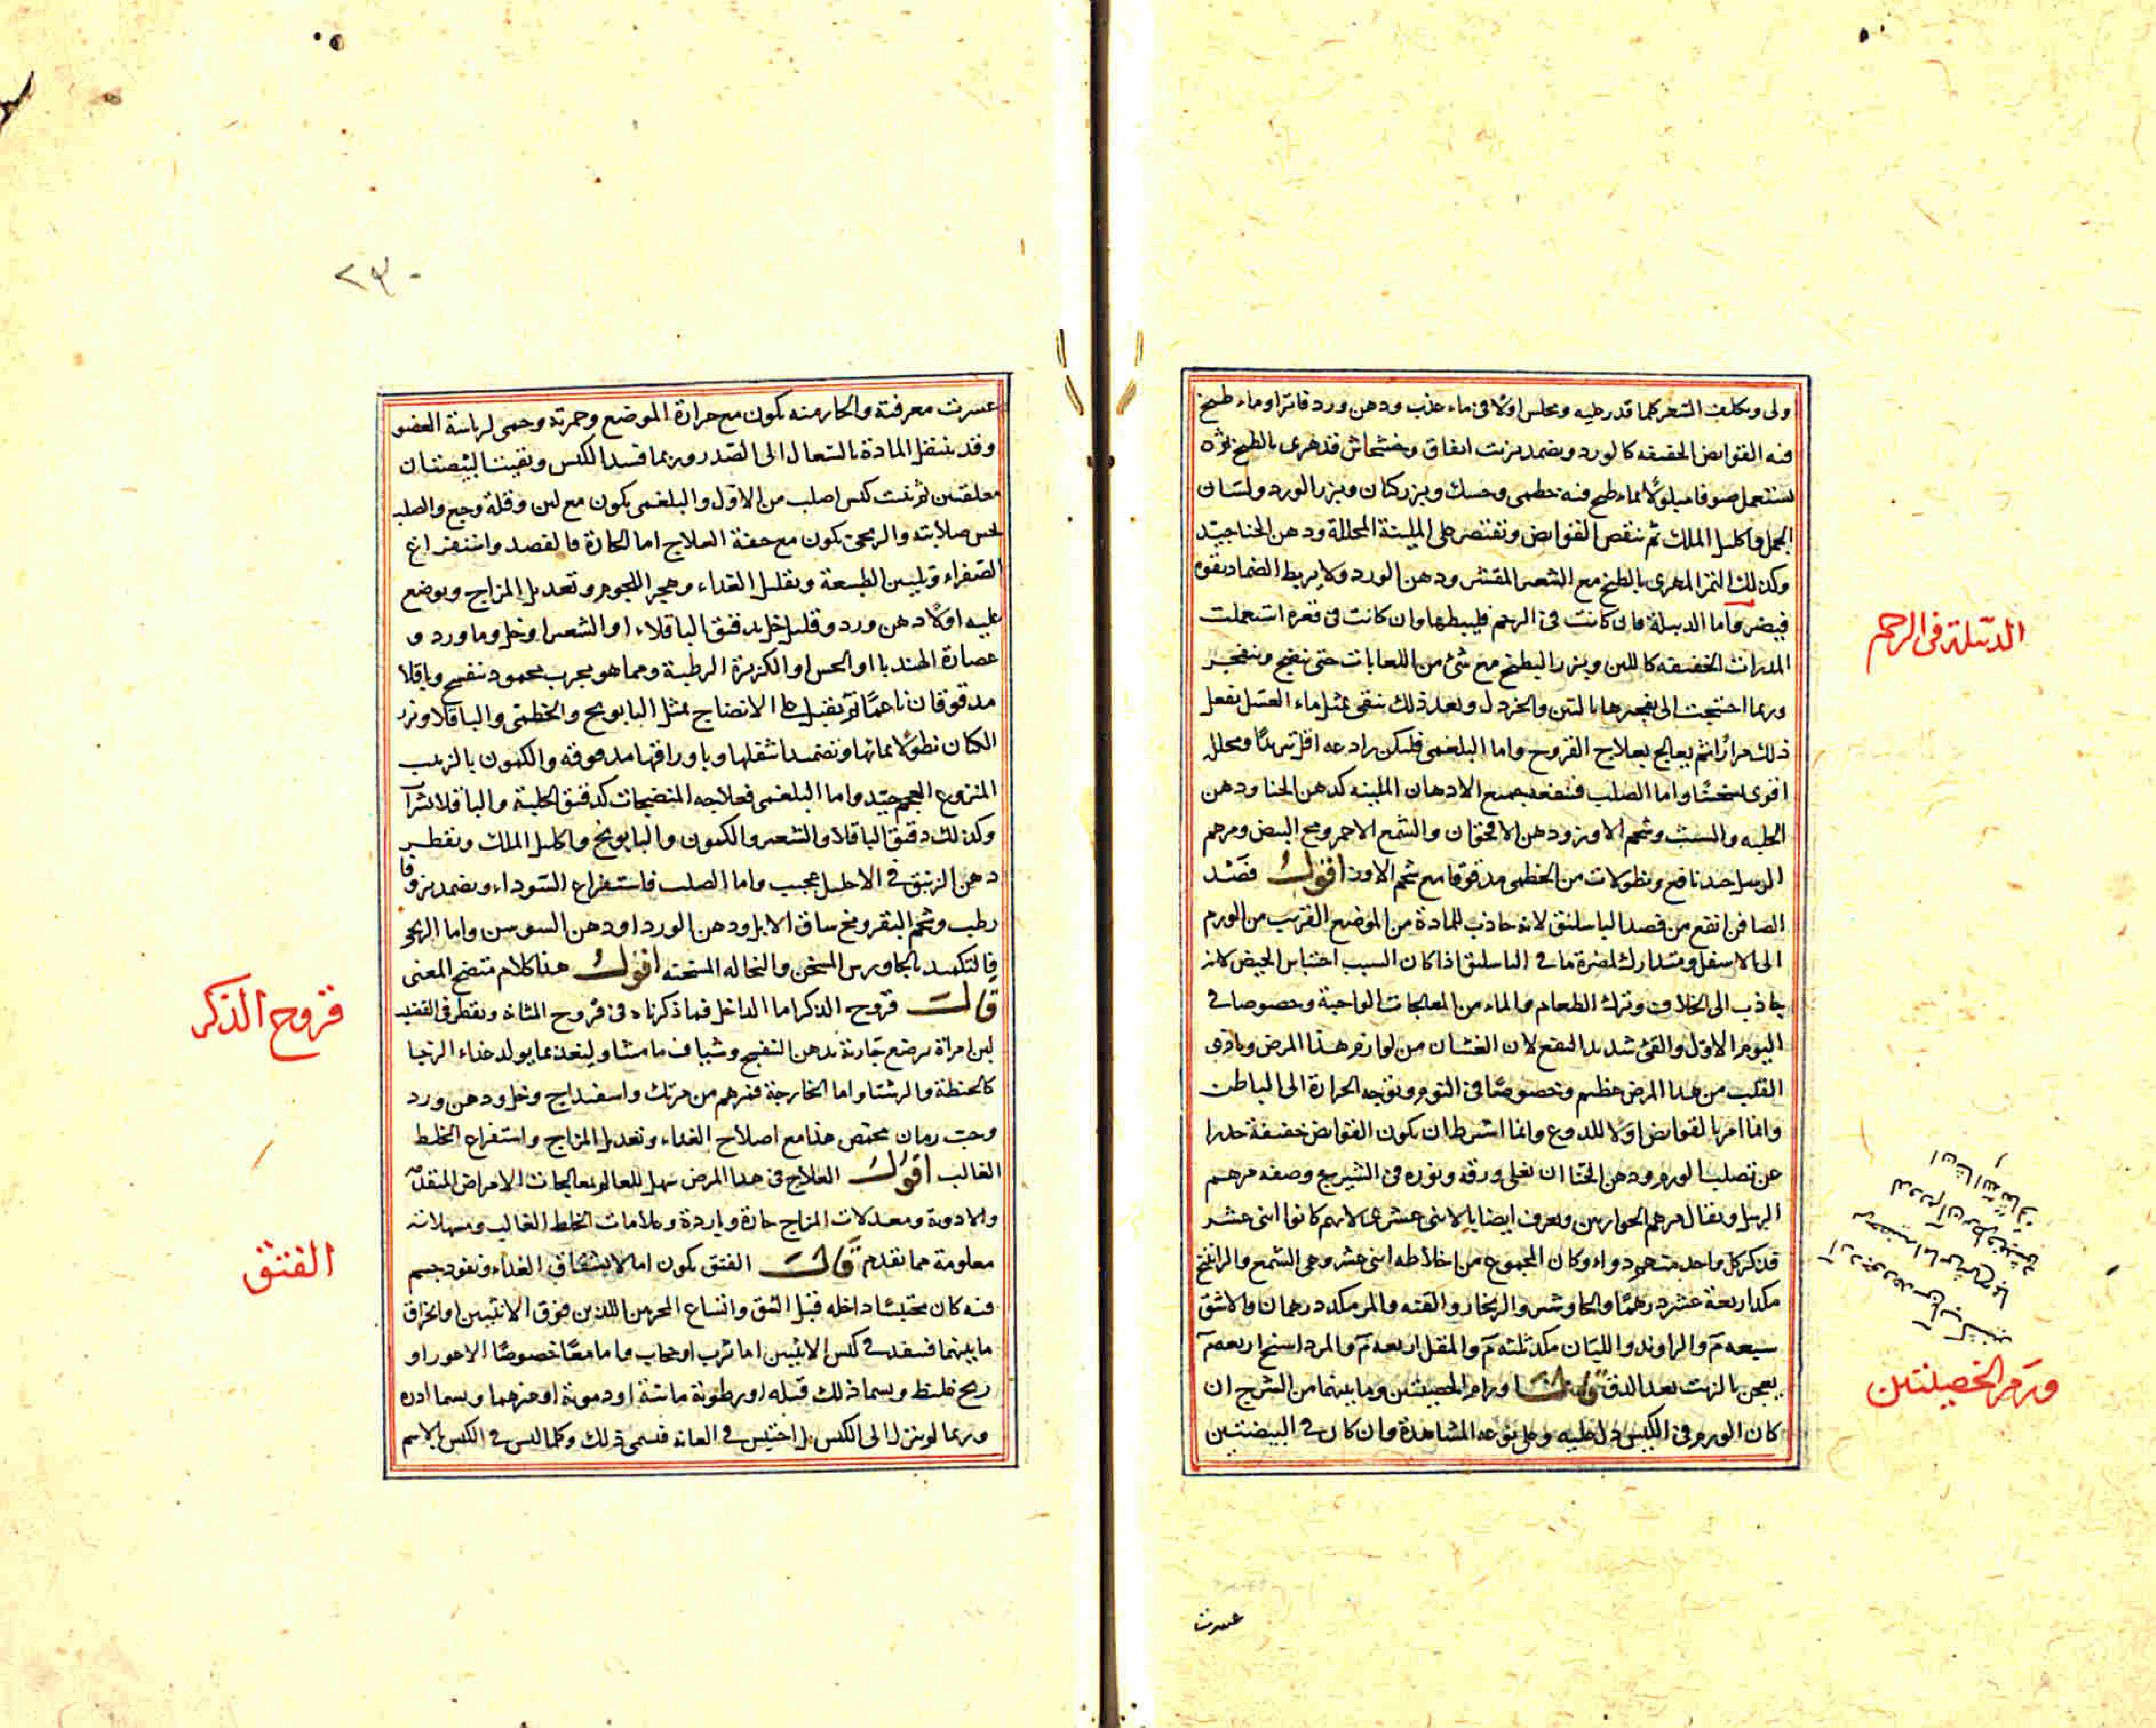 ولى وتكلف الشعر كما قدر عليه وتجلس اولا فى ماء عذب ودهن ورد فاترا وماء طبيخ
فيه القوابض الخفيفة كالورد ويضمد بزيت انفاق وخشخاش قد هرى بالطبخ ثم
تستعمل صوفا مبلولا بماء طبخ فيه خطمى وحسك وبزر كتان وبزر الورد ولسان
الحمل واكليل الملك ثم تنقص القوابض وتقتصر على الملينة المحللة ودهن الحنا جيد
وكذلك التمر المهرى بالطبخ مع الشعير المقشر ودهن الورد ولا يربط الضماد بقوة
فيضر واما الدبيلة فان كانت فى الرحم فليبطها وان كانت فى قعره استعملت
المدرات الخفيفة كاللبن وبزر البطيخ مع شئ من اللعابات حتى تنضج وتنفجر
وربما احتيجت الى تفجيرها بالتين والخردل وبعد ذلك تنقى بمثل ماء العسل يفعل
ذلك مرارا ثم يعالج بعلاج القروح واما البلغمى فليكن رادعه اقل تبريدا ومحلله
اقوى تسخينا واما الصلب فينفعه جميع الادهان الملينة كدهن الحنا ودهن
الحلبة والشبث وشحم الاوز ودهن الاقحوان والشمع الاحمر ومح البيض ومرهم
الرسل جيد نافع ونطولات من الخطمى مدقوقا مع شحم الاوز اقول فصد
الصافن انفع من فصد الباسليق لانه جاذب للمادة من الموضع القريب من الورم
الى الاسفل ومتدارك لمضرة ما فى الباسليق اذا كان السبب احتباس الحيض لانه
جاذب الى الخلاف وترك الطعام والماء من المعالجات الواجبة وخصوصا فى
اليوم الاول والقئ شديد النفع لان الغشان من لوازم هذا المرض وتاذى
القلب من هذا المرض عظيم وخصوصا فى النوم وتوجه الحرارة الى الباطن
وانما امر بالقوابض اولا للدوع وانما اشترط ان يكون القوابض خفيفة حذرا
عن تصلب الورم ودهن الحنا ان تغلى ورقه ونوره فى الشيرج وصفة مرهم
الرسل ويقال مرهم الحواريين ويعرف ايضا بالاثنى عشرى لانهم كانوا اثنى عشر
قد ذكر كل واحد منهم دواء وكان المجموع من اخلاطه اثنى عشر وهى الشمع والراتينج
مكد اربعة عشر درهما والجاوشير والزنجار والقنه والمر مكد درهمان والاشق
سبعة م والراوند واللبان مكد ثلثة م والمقل اربعة م والمرداسنج اربعة م
يعجن بالزيت بعد الدق قال اورام الخصيتين وما بينهما من الشرج ان
كان الورم فى الكيس دل عليه وعلى نوعه المشاهدة وان كان فى البيضتين
الدبيلة فى الرحم
ورم الخصيتين
عسرت
٢٣٠
عسرت معرفته والحار منه يكون مع حرارة الموضع وحمرته وحمى لرياسة العضو
وقد تنتقل المادة بالسعال الى الصدر وربما فسد الكيس وبقيتا البيضتان
معلقتين ثم نبت كيس اصلب من الاول والبلغمى يكون مع لين وقلة وجع والصلب
تحس صلابته والريحى يكون مع خفة العلاج اما الحارة فالفصد واستفراغ
الصفراء وتليين الطبيعة وتقليل الغذاء وهجر اللحوم وتعديل المزاج ويوضع
عليه اولا دهن ورد وقليل خل بدقيق الباقلاء او الشعير او خل وماورد و
عصارة الهندبا او الخس او الكزبرة الرطبة ومما هو مجرب محمود بنفسج وباقلا
مدقوقان ناعما ثم تقبل على الانضاج بمثل البابونج والخطمى والباقلا وبزر
الكتان نطولا بمائها وتضميدا بثفلها وباوراقها مدقوقة والكمون بالزبيب
المنزوع العجم جيد واما البلغمى فعلاجه المنضجات كدقيق الحلبة والباقلا بشراب
وكذلك دقيق الباقلا والشعير والكمون والبابونج واكليل الملك وتقطير
دهن الزنبق فى الاحليل عجيب واما الصلب فاستفراغ السوداء ويضمد بزوفا
رطب وشحم البقر ومخ ساق الابل ودهن الورد او دهن السوسن واما الريحى
فالتكميد بالجاورس المسخن والنخالة المسخنة اقول هذا كلام متضح المعنى
قال قروح الذكر اما الداخل فما ذكرناه فى قروح المثانة ويقطر فى القضيب
لبن امراة ترضع جارية بدهن البنفسج وشياف مامشا وليغذ بما يولد غذاء لزجا
كالحنطة والرشتا واما الخارجة فمرهم من مرتك واسفيداج وخل ودهن ورد
وحب رمان محمص هذا مع اصلاح الغذاء وتعديل المزاج واستفراغ الخلط
الغالب اقول العلاج فى هذا المرض سهل للعالم بمعالجات الامراض المتقدمة
والادوية ومعدلات المزاج حارة وباردة وعلامات الخلط الغالب ومسهلاته
معلومة مما تقدم قال الفتق يكون اما لانشقاق الغشاء ونفوذ جسم
فيه كان محتبسا داخله قبل الشق واتساع المجريين اللذين فوق الانثيين او انخراق
ما بينهما فينفذ فى كيس الانثيين اما ثرب او حجاب واما معا خصوصا الاعور او
ريح غليظ ويسما ذلك قيله او رطوبة مائية او دموية او غيرهما ويسما ادره
وربما لم ينزل الى الكيس بل احتبس فى العانة فيسمى ذلك وكلما ليس فى الكيس بالاسم
قروح الذكر
الفتق